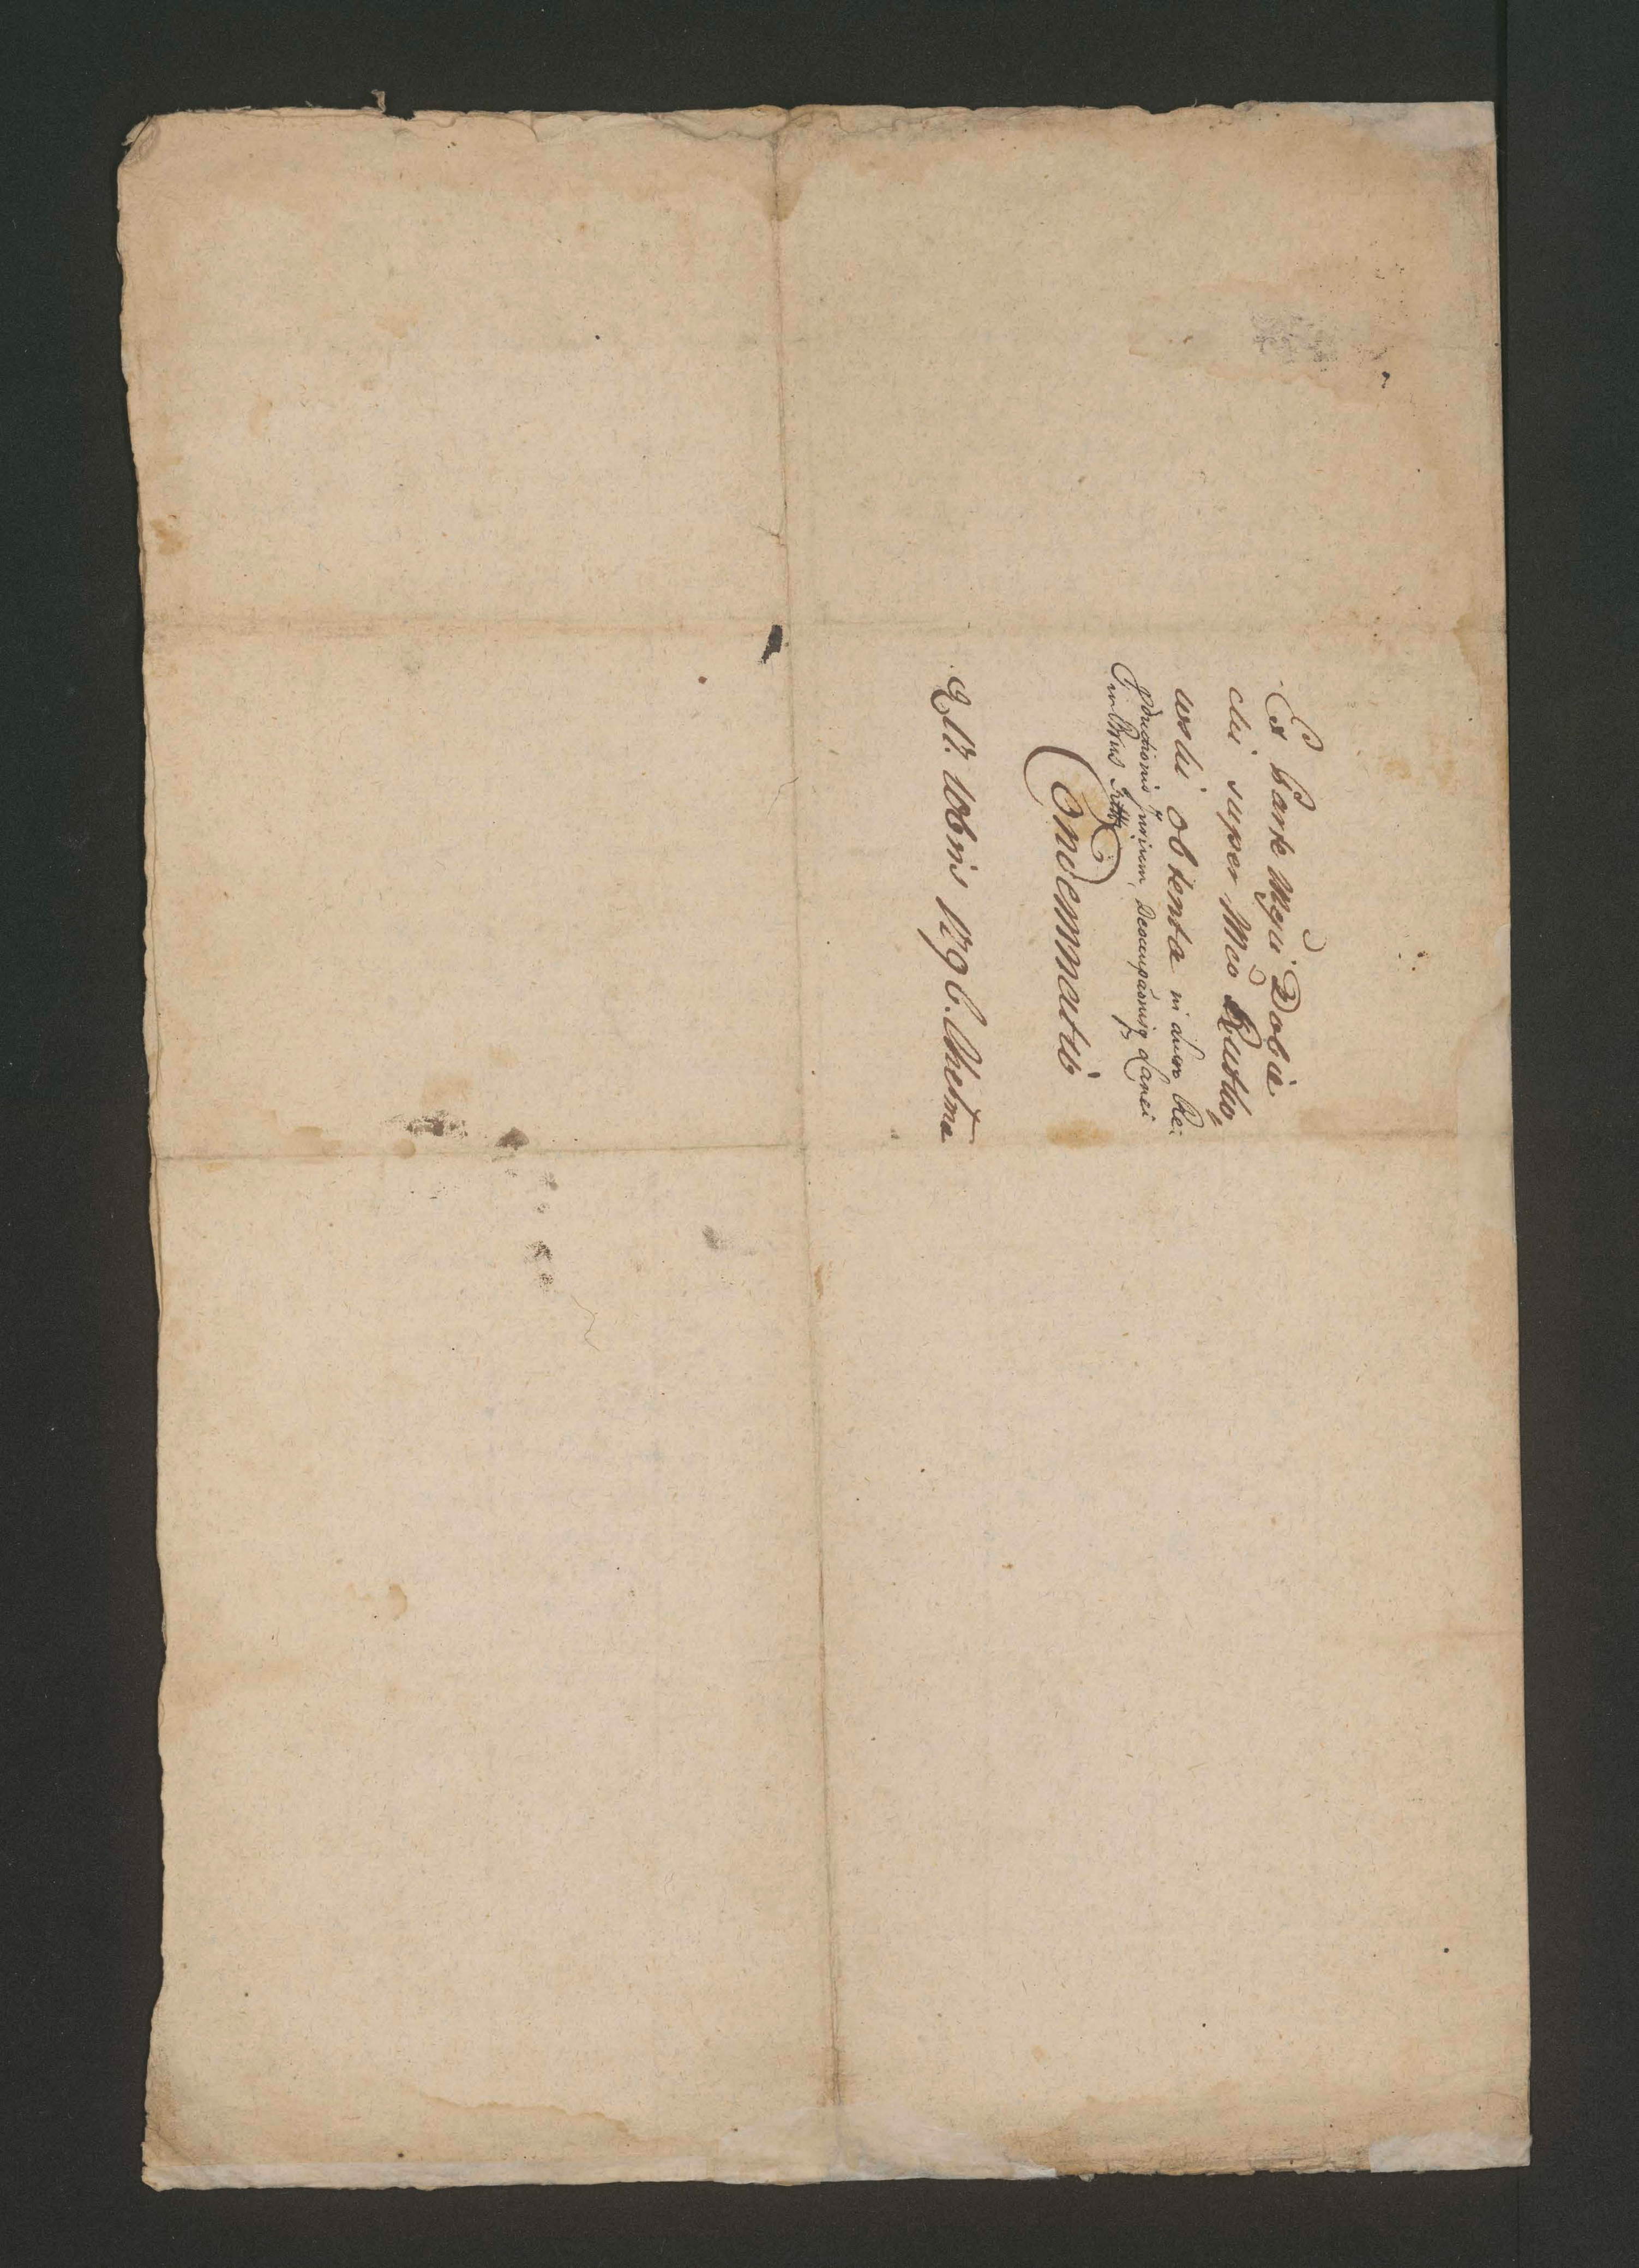 Ex Parte Mgci Dobie
cki super Mco Rustko
wski obtenta in causa Re
productionis Jurium, Desumpõnisq Lanei
in Brus
Condemnatis
17. 10bris 1796. Chelmae